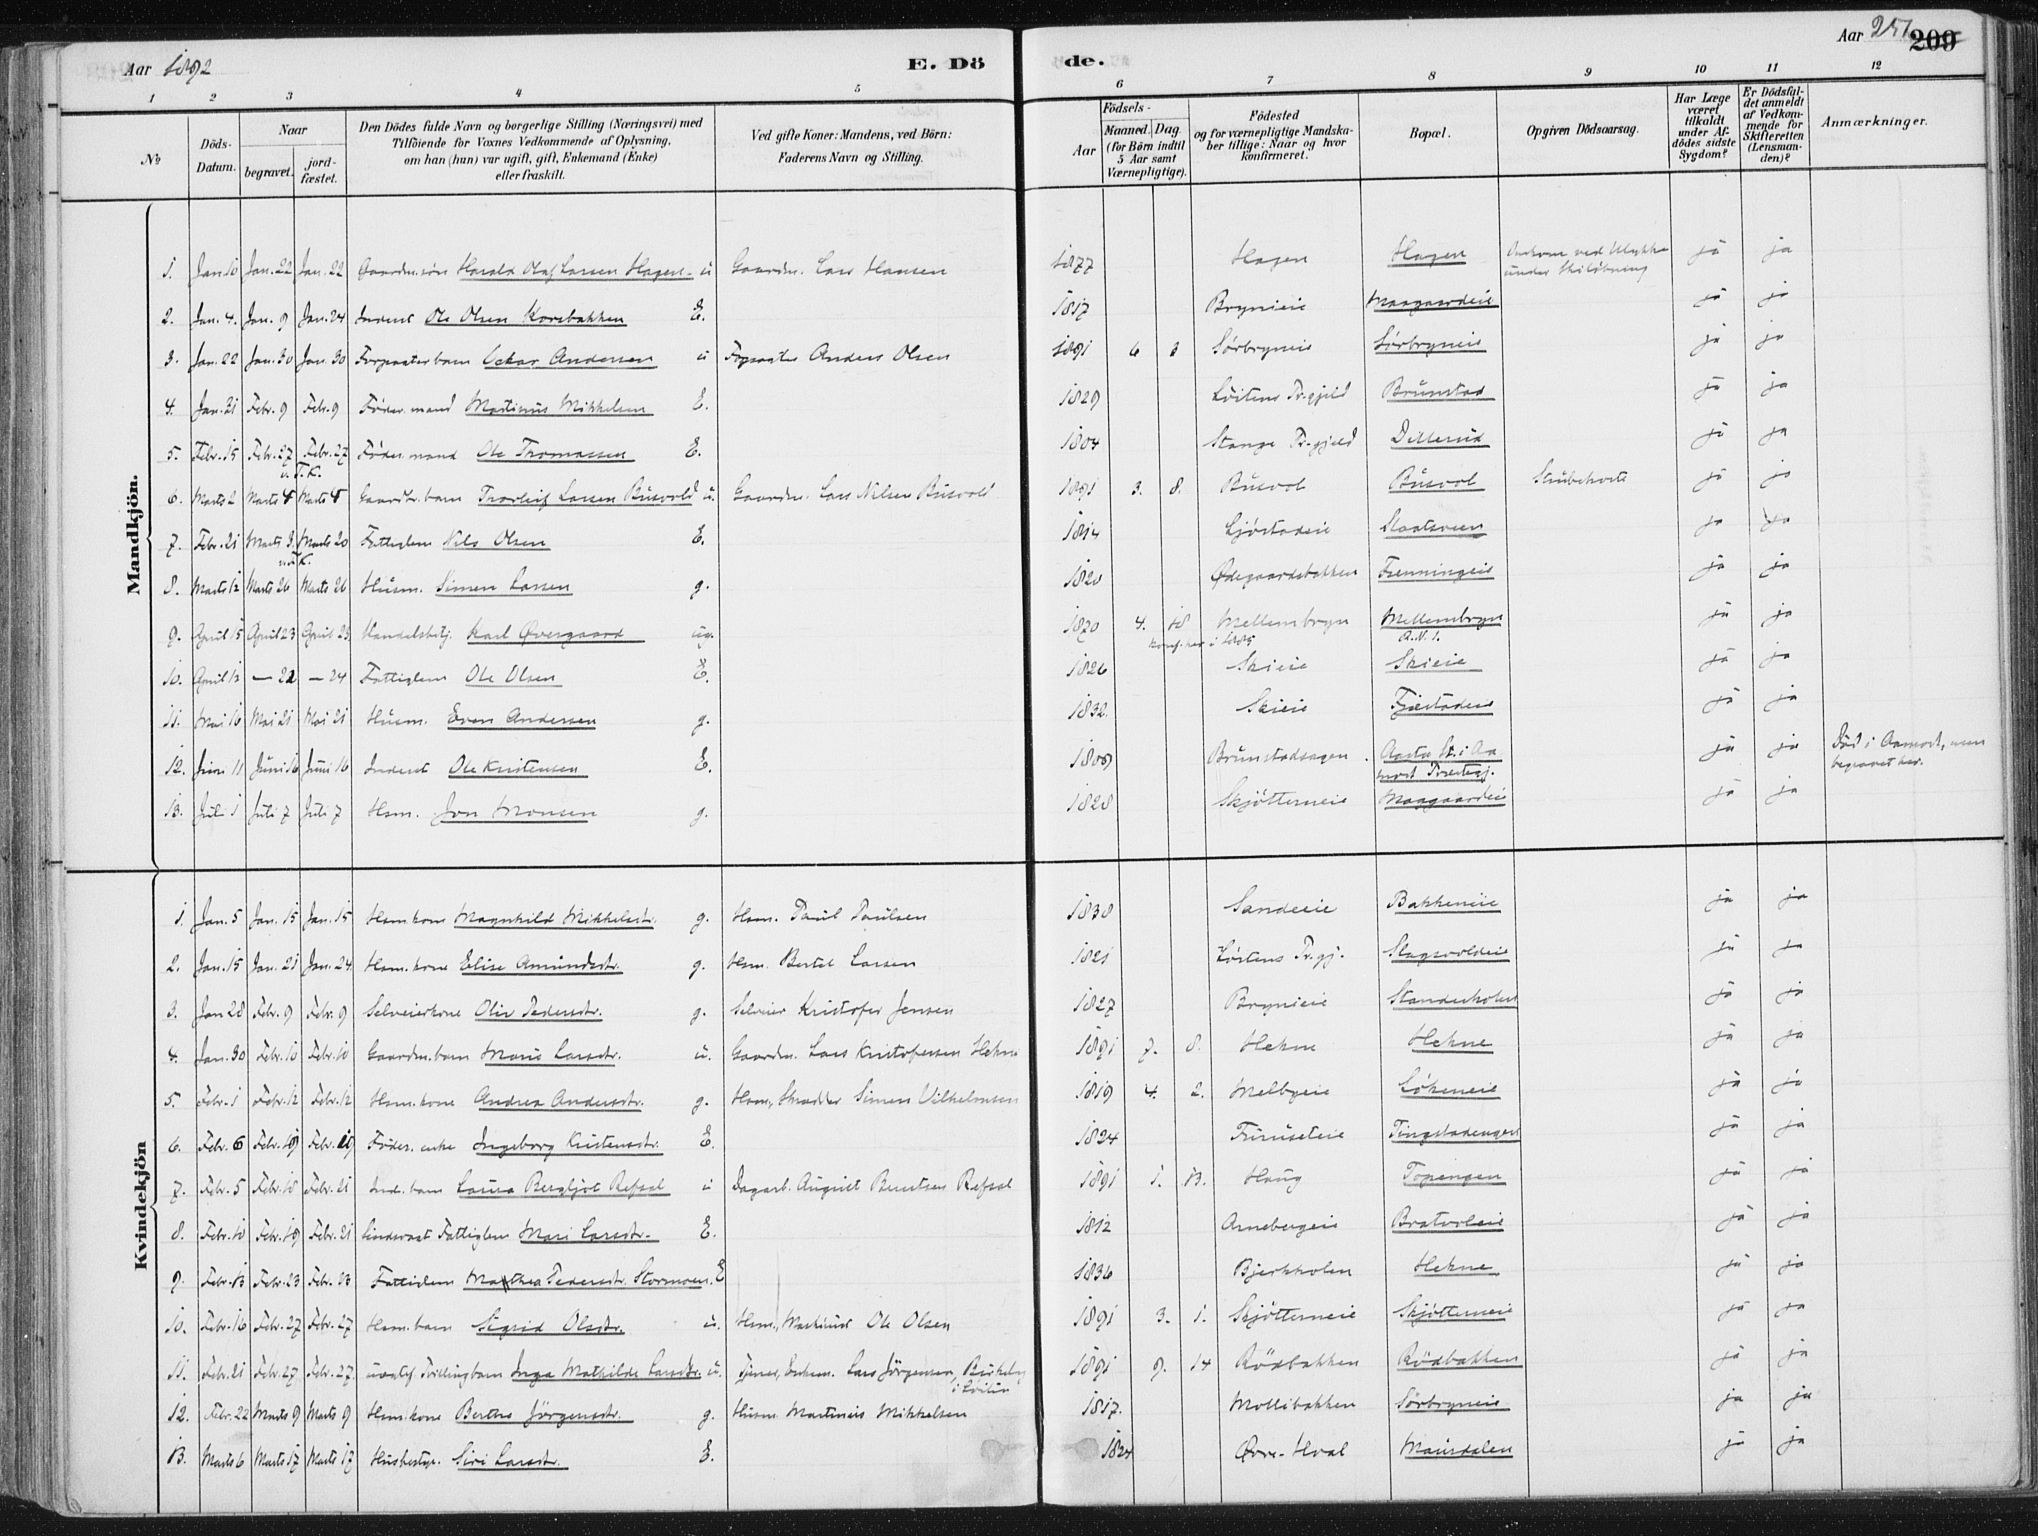 Aar 1892
E. Dö
de.
Aar 251
209
1 2 3 4 5 6 7 8 9 10 11 12
No
Döds-Datum.
Naar
begravet.
jord-fæstet.
Den Dödes fulde Navn og borgerlige Stilling (Næringsvei) med
Tilföiende for Voxnes Vedkommende af Oplysning,
om han (hun) var ugift, gift, Enkemand (Enke)
eller fraskilt.
Ved gifte Koner: Mandens, ved Börn:
Faderens Navn og Stilling.
Födsels-
Aar
Maaned. Dag.
(for Börn indtil
5 Aar samt
Værnepligtige).
Födested
og for værnepligtige Mandska-
ber tillige: Naar og hvor
konfirmeret.
Bopæl.
Opgiven Dödsaarsag.
Har Læge
været
tilkaldt
under Af-
dödes sidste
Sygdom?
Er Dödsfal-
det anmeldt
af Vedkom-
mende for
Skifteretten
(Lensman-
den)?
Anmærkninger.
Mandkjön.
1. Jan. 10 Jan. 22 Jan. 22 Gaardm. søn Harald Olaf Larsen Hagen u Gaardm. Lars Hansen 1877 Hagen Hagen Omkom ved Ulykke under Skiløbning ja ja
2. Jan. 4. Jan. 9 Jan. 24 Inderst Ole Olsen Korsbakken E. 1817 Brynieie Maagaardeie ja ja
3. Jan. 22 Jan. 30 Jan. 30 Forpagterbarn Oskar Andersen u Forpagter Anders Olsen 1891 6 3 Sørbryneie Sørbryneie ja ja
4. Jan. 31 Febr. 9 Feb. 9 Føder.mand Martinus Mikkelsen E. 1829 Løitens Pr.gjeld Brunstad ja ja
5. Febr. 15 Febr. 27 Febr. 27 Føder.mand Ole Thomassen E. 1804 Stange Pr.gjeld Dillerud ja ja
u. T. K.
6. Marts 2 Marts 5 Marts 5 Gaardbr. barn Thorleif Larsen Busvold u. Gaardm. Lars Nilsen Busvold 1891 3. 8. Busvol Busvol Strubehoste ja ja
7. Febr. 21 Marts 3. Marts 20 Fattiglem Nils Olsen E. 1814 Ljøstadeie Slaatsveen ja ja
u. T. K.
8. Marts 12 Marts 26 Marts 26 Husm. Simen Larsen g. 1820 Ødegaardsbakken Fremmingeie ja ja
9. April 15 April 23 April 23 Handelsbetj. Karl Øvergaard ug. 1870 4. 18 Mellembryn Mellembryn ja ja
konf. her i 1885
10. April 12 — 22 — 24 Fattiglem Ole Olsen E. 1826 Skieie Skieie ja ja
11. Mai 16 Mai 21 Mai 21 Husm. Even Andersen g. 1832. Skieie Fjæstadeie ja ja
12. Juni 11 Juni 16 Juni 16 Inderst Ole Kristensen E. 1809 Brunstadsagen Aasta St. i Aamodt Præstegj. ja ja Död i Aamodt, men begravet her.
13. Juli 1 Juli 7 Juli 7 Hsm. Jon Monsen g. 1828 Skjötterneie Maagaardeie ja ja
Kvindekjön
1 Jan. 5 Jan. 15 Jan. 15 Hsm.kone Magnhild Mikkelsdtr. g. Hsm. Paul Paulsen 1838 Sandeeie Bakkeneie ja ja
2. Jan. 15 Jan. 21 Jan. 24 Hsm.kone Elise Amundsdtr. g. Hsm. Bertel Larsen 1821 Løitens Pr.gj. Slagsvoldeie ja ja
3. Jan 28 Febr. 9 Febr. 9 Selveierkone Oliv Pedersdtr. g. Selveier Kristofer Jensen 1827 Brynieie ja ja
4. Jan. 30 Febr. 10 Febr. 10 Gaardm.barn Marie Larsdtr. u. Gaardm. Lars Kristofersen Hekne 1891 7. 8. Hekne Hekne ja ja
5. Febr. 1 Febr. 12 Febr. 12 Hsm.kone Andrea Andersdtr. g. Hsm., Skrædder Simen Vilhelmsen 1819 4. 2. Melbyeie Løkeneie ja ja
6. Febr. 6 Febr. 19 Febr. 19 Føder.enke Ingeborg Kristensdtr. E. 1824 Furuseteie Tingstadengen ja ja
7. Febr. 5 Febr. 18 Febr. 21 Ind. barn Laura Bergljot Refsal u Dagarb. August Berntsen Refsal 1891 1. 13. Haug Topengen ja ja
8. Febr. 10 Febr. 19 Febr. 21 Sindssvag Fattiglem Mari Larsdtr. E. 1812 Arnebergeie Bratvoleie ja ja
9. Febr. 13 Febr. 23 Febr. 23 Fattiglem Marthea Pedersdtr. Stormoen. E 1836 Bjerkholen Hekne ja ja
10. Febr. 16 Febr. 27 Febr. 27 Hsm.barn Sigrid Olsdtr. u. Hsm., Ole Olsen 1891 3. 1. Skjötterneie Skjötterneie ja ja
11. Febr. 21 Febr. 27 Febr. 27 Tvillingbarn Inga Mathilde Larsdtr. u. Tjener, Enkem. Lars Jörgensen, Birkeby i Løiten 1891 9. 14 Rödbakken Rödbakken ja ja
12. Febr. 22 Marts 9 Marts 9 Hsm.kone Berthe Jörgensdtr. g. Husm. Martinus Mikkelsen 1817. Mollibakken Sörbryneie ja ja
13. Marts 6 Marts 17 Marts 17 Husbestyr. Siri Larsdtr. E. 1824 Øvre-Hval Mausdalen ja ja